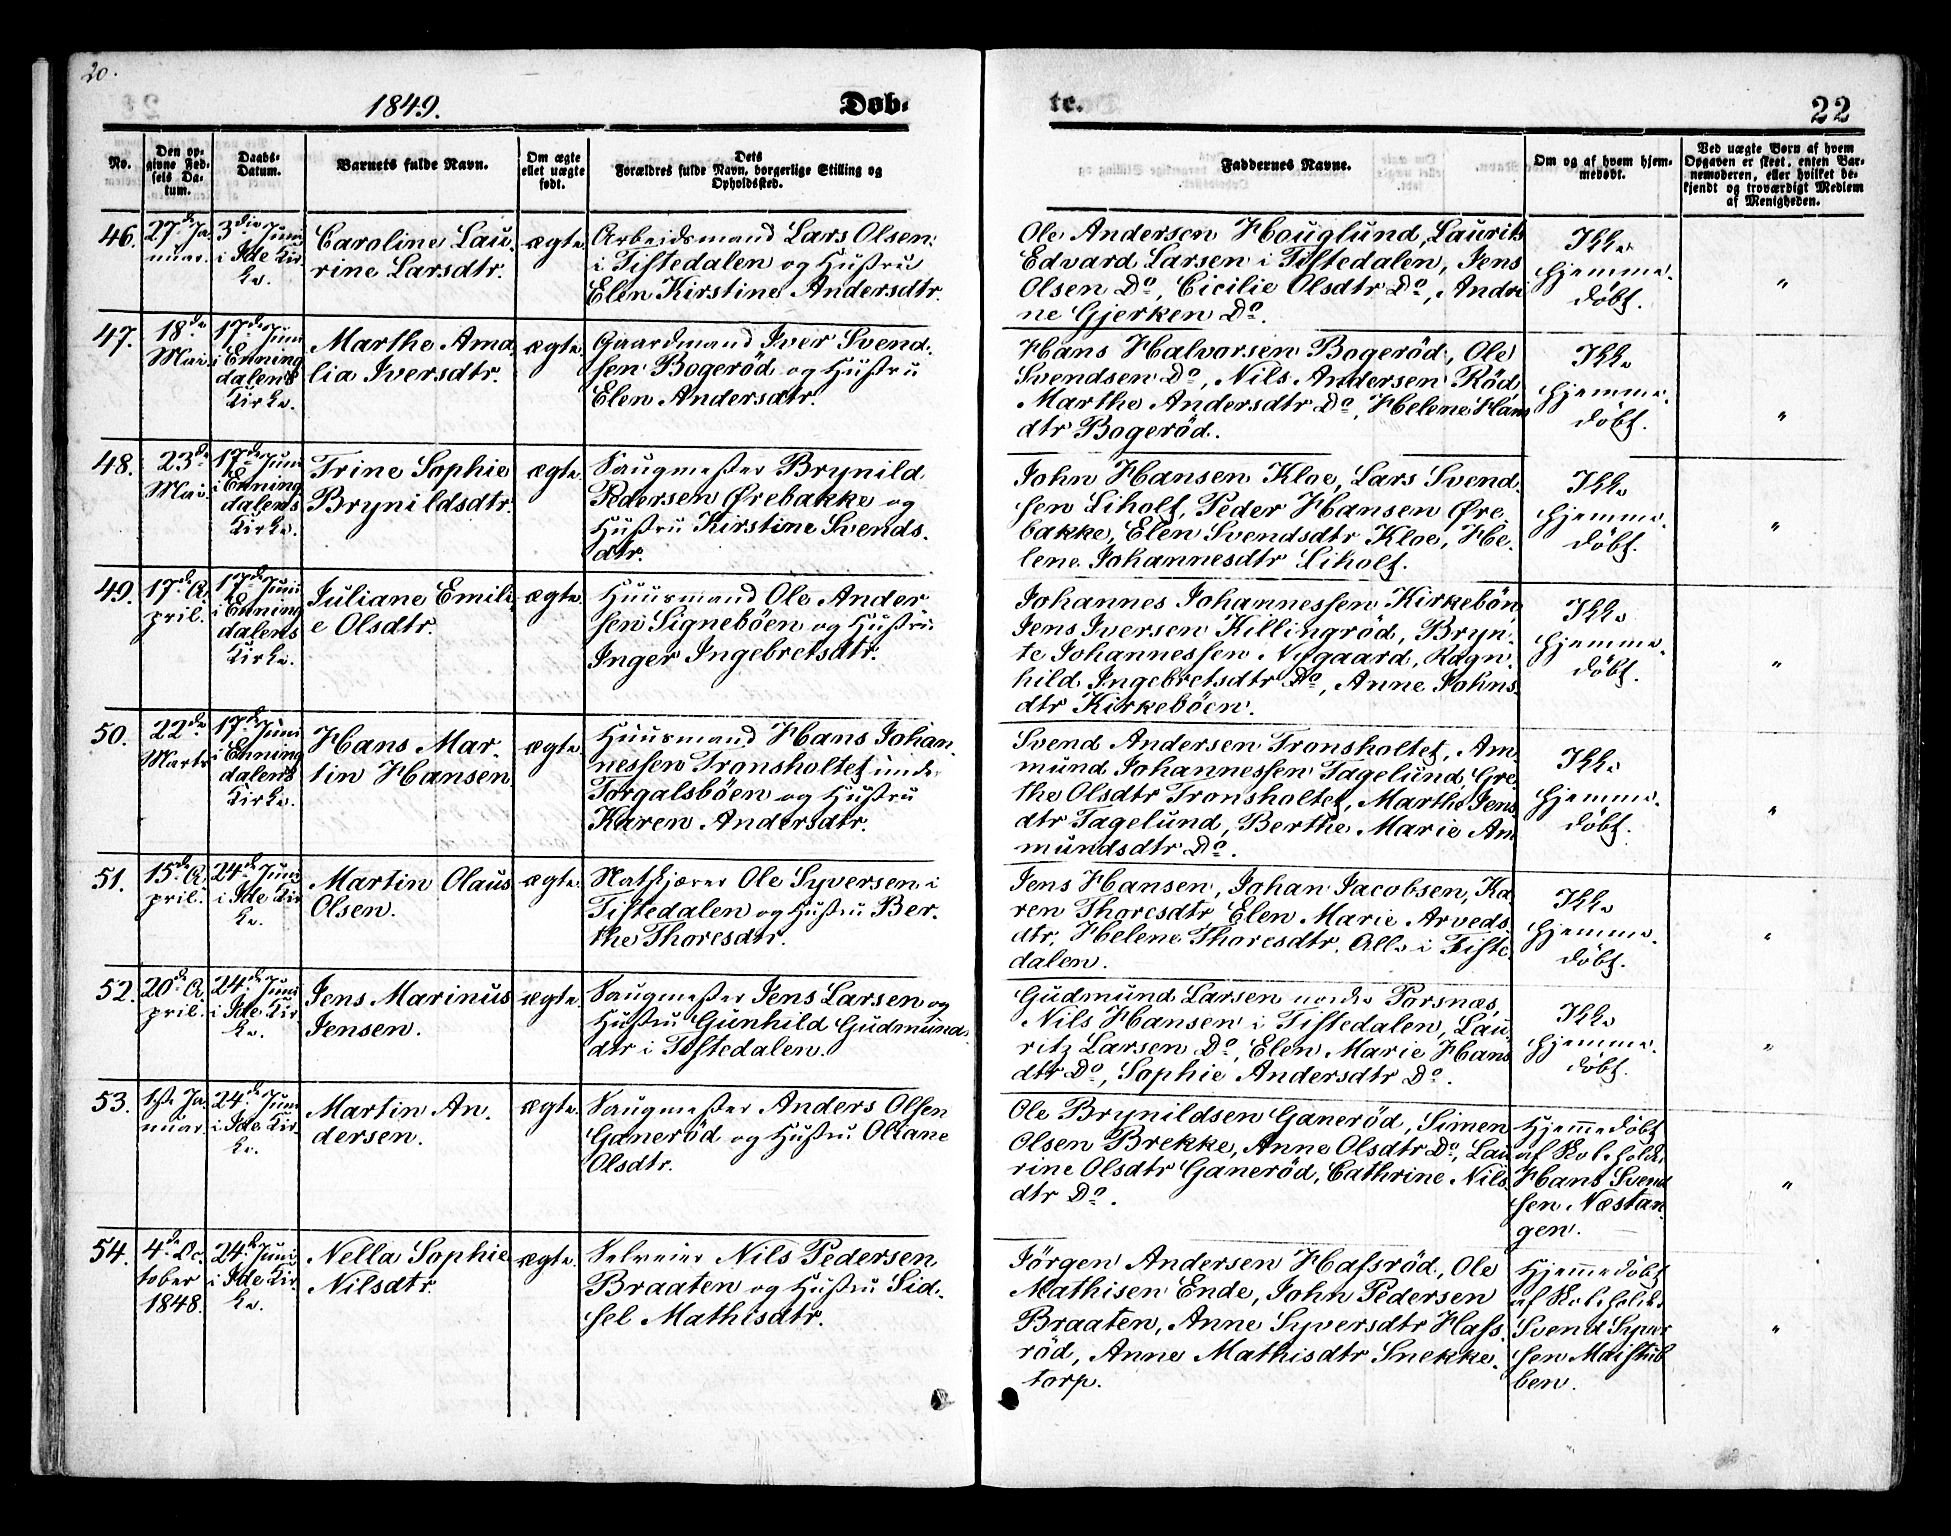 20.
1849.
Døb-
te.
22
No.
Den op-
givne Fød-
sels Da-
tum.
Daabs-
Datum.
Barnets fulde Navn.
Om ægte
ellet uægte
født.
Dets
Forældres fulde Navn, borgerlige Stilling og
Opholdssted.
Faddernes Navne.
Om og af hvem hjem-
medøbt.
Ved uægte Børn af hvem
Opgaven er skeet, enten Bar-
nemoderen, eller hvilket be-
kjendt og troværdigt Medlem
af Menigheden.
46.
27de Ja-
nuar.
3die Juni
i Ide Kir-
ke.
Caroline Lau-
rine Larsdtr.
ægte.
Arbeidsmand Lars Olsen
i Tistedalen og Hustru
Elen Kirstine Andersdtr.
Ole Andersen Houglund, Laurits
Edvard Larsen i Tistedalen, Jens
Olsen Do, Cicilie Olsdtr Do, Andri-
ne Gjerken Do.
Ikke
hjemme-
døbt.
"
47.
18de
Mai.
17de Juni
i Enning
dalens
Kirke.
Marthe Ama
lia Iversdtr.
ægte.
Gaardmand Iver Svend-
sen Bogerød og Hustru
Elen Andersdtr.
Hans Halvorsen Bogerød, Ole
Svendsen Do, Nils Andersen Röd
Marthe Andersdtr Do, Helene Hans
dtr Bogeröd.
Ikke
hjemme-
døbt.
"
48.
23de
Mai.
17de Juni
i Enning
dalens
Kirke.
Trine Sophie
Brynildsdtr.
ægte.
Saugmester Brynild
Pedersen Ørebakke og
Hustru Kirstine Svends-
dtr.
John Hansen Kloe, Lars Svend-
sen Liholt, Peder Hansen Øre-
bakke, Elen Svendsdtr Kloe, He-
lene Johannesdtr Liholt.
Ikke
hjemme-
døbt.
"
49.
17de A-
pril.
17de Juni
i Enning
dalens
Kirke.
Juliane Emili-
e Olsdtr.
ægte.
Huusmand Ole Ander
sen Signebøen og Hustru
Inger Ingebretsdtr.
Johannes Johannessen Kirkebön
Jens Iversen Killingröd, Bryn-
te Johannessen Nygaard, Ragn-
hild Ingebretsdtr Do, Anne Johns-
dtr Kirkeböen.
Ikke
hjemme-
døbt.
"
50.
22de
Marts
17de Juni
i Enning
dalens
Kirke.
Hans Mar-
tin Hansen
ægte.
Huusmand Hans Johan-
nessen Tronsholtet under
Torgalsböen og Hustru
Karen Andersdtr.
Svend Andersen Tronsholtet, Am-
mund Johannessen Tagelund, Gre-
the Olsdtr Tronsholtet, Marthe Jens
dtr Tagelund, Berthe Marie Am
mundsdtr Do.
Ikke
hjemme-
døbt.
"
51.
15de A-
pril.
24de Juni
i Ide Kir-
ke.
Martin Olaus
Olsen.
ægte.
Ole Syversen i
Tistedalen og Hustru Ber-
the Thoresdtr.
Jens Hansen, Johan Jacobsen, Ka
ren Thoresdtr, Elen Marie Arveds-
dtr, Helene Thoresdtr. Alle i Tiste-
dalen.
Ikke
hjemme-
døbt.
"
52.
20de A-
pril.
24de Juni
i Ide Kir-
ke.
Jens Marinus
Jensen.
ægte.
Saugmester Jens Larsen og
Hustru Gunhild Gudmunds-
dtr i Tistedalen.
Gudmund Larsen nordre Porsnæs,
Nils Hansen i Tistedalen, Lau-
ritz Larsen Do, Elen Marie Hans
dtr Do, Sophie Andersdtr Do.
Ikke
hjemme-
døbt.
"
53.
1ste Ja-
nuar.
24de Juni
i Ide Kir-
ke.
Martin An-
dersen.
ægte.
Saugmester Anders Olsen
Ganerød og Hustru Oliane
Olsdtr.
Ole Brynildsen Ganeröd, Simen
Olsen Brekke, Anne Olsdtr Do, Lau
rine Olsdtr Ganeröd, Cathrine Nils
dtr Do.
Hjemmedøbt
af Skoleholder
Hans Svend
sen Næstan-
gen.
"
54.
4de Oc-
tober
1848.
24de Juni
i Ide Kir-
ke.
Nella Sophie
Nilsdtr.
ægte.
Selveier Nils Pedersen
Braaten og Hustru Sid-
sel Mathisdtr.
Jörgen Andersen Hafsröd, Ole
Mathisen Ende, John Pedersen
Braaten, Anne Syversdtr Hafs-
röd, Anne Mathisdtr Snekke-
torp.
Hjemmedøbt
af Skoleholder
Svend Syver
sen Maistub
ben.
"